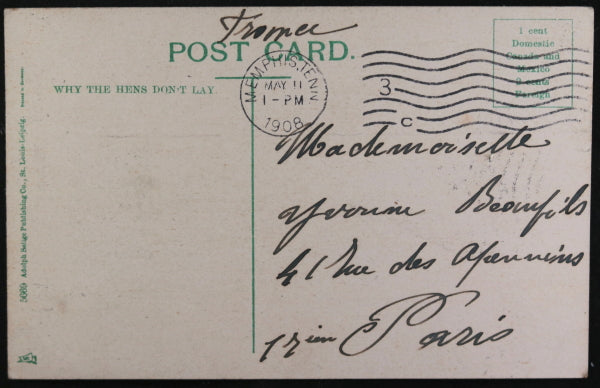 France
POST CARD.
1 cent
Domestic
Canada and
Mexico
2 cents
Foreign
WHY THE HENS DON'T LAY.
MEMPHIS, TENN
MAY 11
1-PM
1908
3
C
Mademoiselle
Yvonne Beaufils
41 Rue des Apennins
17ien Paris
5669 Adolph Selige Publishing Co., St. Louis-Leipzig.
Printed in Germany